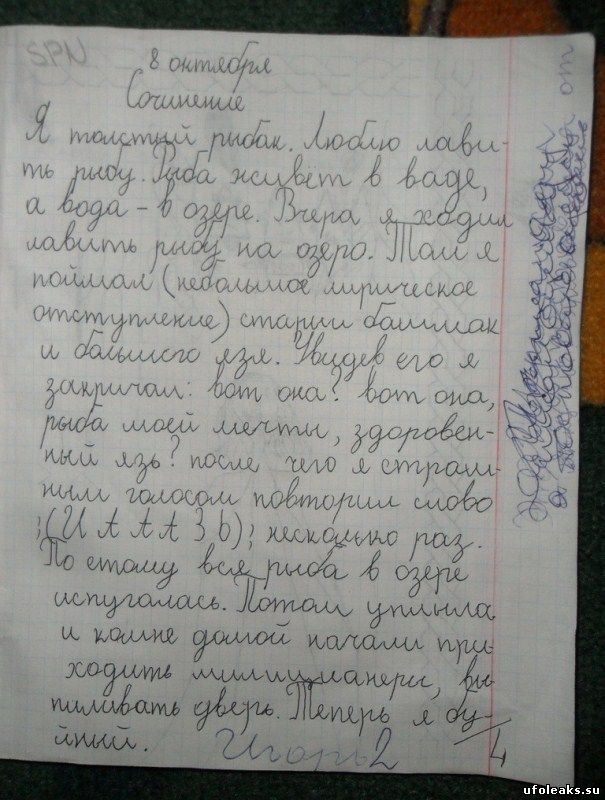 SPN
8 октября
Сочинение
Я толстый рыбак. Люблю лави-
ть рыбу. Рыба живёт в ваде,
а вода - в озере. Вчера я ходил
лавить рыбу на озеро. Там я
поймал (небольшое лирическое
отступление) старии башмак
и большого язя. Увидев его я
закричал: вот она? вот она,
рыба моей мечты, здоровен-
ный язь? после чего я страш-
ным голосом повторил слово
;(И А А А З Ь); несколько раз.
По етому вся рыба в озере
испугалась. Потом уплыла
и комне домой начали при-
ходить милицианеры, вы-
пиливать дверь. Теперь я бу-
йный.
Игорь 2
4
от
ufoleaks.su